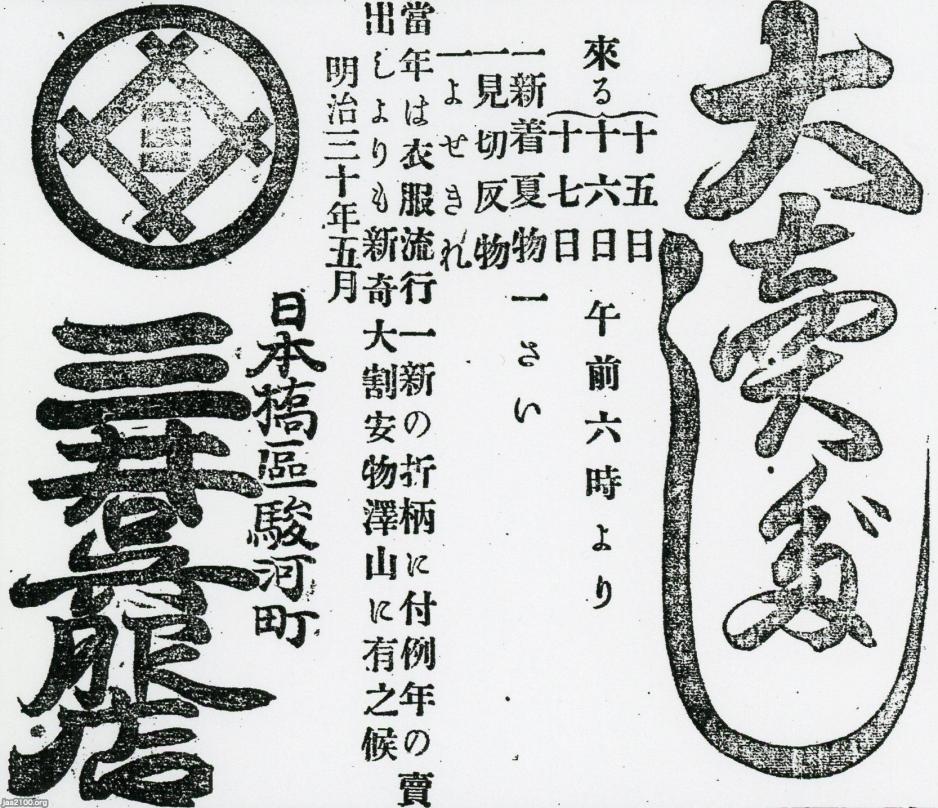 大賣だし
十五日
來る十六日 午前六時より
十七日
一新着夏物 一さい
一見切反物
一よせきれ
當年は衣服流行一新の折柄に付例年の賣
出しよりも新奇大割安物澤山に有之候
明治三十年五月
日本橋區駿河町
三
三井呉服店
jaa2100.org